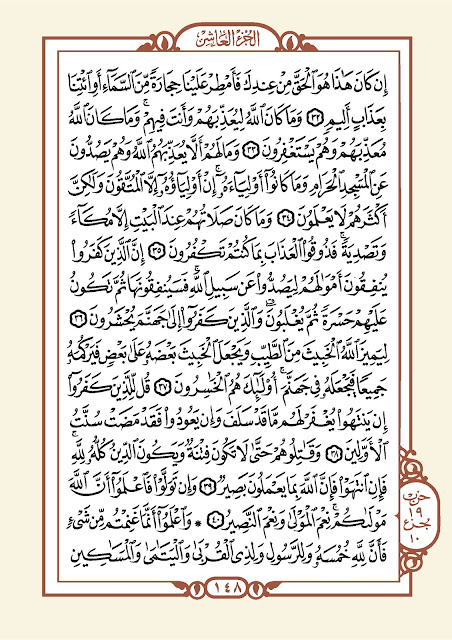 الجزء العاشر
إِن كَانَ هَٰذَا هُوَ ٱلْحَقَّ مِنْ عِندِكَ فَأَمْطِرْ عَلَيْنَا حِجَارَةً مِّنَ ٱلسَّمَآءِ أَوِ ٱئْتِنَا
بِعَذَابٍ أَلِيمٍ ٣٢ وَمَا كَانَ ٱللَّهُ لِيُعَذِّبَهُمْ وَأَنتَ فِيهِمْ ۚ وَمَا كَانَ ٱللَّهُ
مُعَذِّبَهُمْ وَهُمْ يَسْتَغْفِرُونَ ٣٣ وَمَا لَهُمْ أَلَّا يُعَذِّبَهُمُ ٱللَّهُ وَهُمْ يَصُدُّونَ
عَنِ ٱلْمَسْجِدِ ٱلْحَرَامِ وَمَا كَانُوٓا۟ أَوْلِيَآءَهُۥٓ ۚ إِنْ أَوْلِيَآؤُهُۥٓ إِلَّا ٱلْمُتَّقُونَ وَلَٰكِنَّ
أَكْثَرَهُمْ لَا يَعْلَمُونَ ٣٤ وَمَا كَانَ صَلَاتُهُمْ عِندَ ٱلْبَيْتِ إِلَّا مُكَآءً
وَتَصْدِيَةً ۚ فَذُوقُوا۟ ٱلْعَذَابَ بِمَا كُنتُمْ تَكْفُرُونَ ٣٥ إِنَّ ٱلَّذِينَ كَفَرُوا۟
يُنفِقُونَ أَمْوَٰلَهُمْ لِيَصُدُّوا۟ عَن سَبِيلِ ٱللَّهِ ۚ فَسَيُنفِقُونَهَا ثُمَّ تَكُونُ
عَلَيْهِمْ حَسْرَةً ثُمَّ يُغْلَبُونَ ۗ وَٱلَّذِينَ كَفَرُوٓا۟ إِلَىٰ جَهَنَّمَ يُحْشَرُونَ ٣٦
لِيَمِيزَ ٱللَّهُ ٱلْخَبِيثَ مِنَ ٱلطَّيِّبِ وَيَجْعَلَ ٱلْخَبِيثَ بَعْضَهُۥ عَلَىٰ بَعْضٍ فَيَرْكُمَهُۥ
جَمِيعًا فَيَجْعَلَهُۥ فِى جَهَنَّمَ ۚ أُو۟لَٰٓئِكَ هُمُ ٱلْخَٰسِرُونَ ٣٧ قُل لِّلَّذِينَ كَفَرُوٓا۟
إِن يَنتَهُوا۟ يُغْفَرْ لَهُم مَّا قَدْ سَلَفَ وَإِن يَعُودُوا۟ فَقَدْ مَضَتْ سُنَّتُ
ٱلْأَوَّلِينَ ٣٨ وَقَٰتِلُوهُمْ حَتَّىٰ لَا تَكُونَ فِتْنَةٌ وَيَكُونَ ٱلدِّينُ كُلُّهُۥ لِلَّهِ ۚ
فَإِنِ ٱنتَهَوْا۟ فَإِنَّ ٱللَّهَ بِمَا يَعْمَلُونَ بَصِيرٌ ٣٩ وَإِن تَوَلَّوْا۟ فَٱعْلَمُوٓا۟ أَنَّ ٱللَّهَ
مَوْلَىٰكُمْ ۚ نِعْمَ ٱلْمَوْلَىٰ وَنِعْمَ ٱلنَّصِيرُ ٤٠ * وَٱعْلَمُوٓا۟ أَنَّمَا غَنِمْتُم مِّن شَىْءٍ
فَأَنَّ لِلَّهِ خُمُسَهُۥ وَلِلرَّسُولِ وَلِذِى ٱلْقُرْبَىٰ وَٱلْيَتَٰمَىٰ وَٱلْمَسَٰكِينِ
حزب
١٩
جزء
١٠
١٤٨